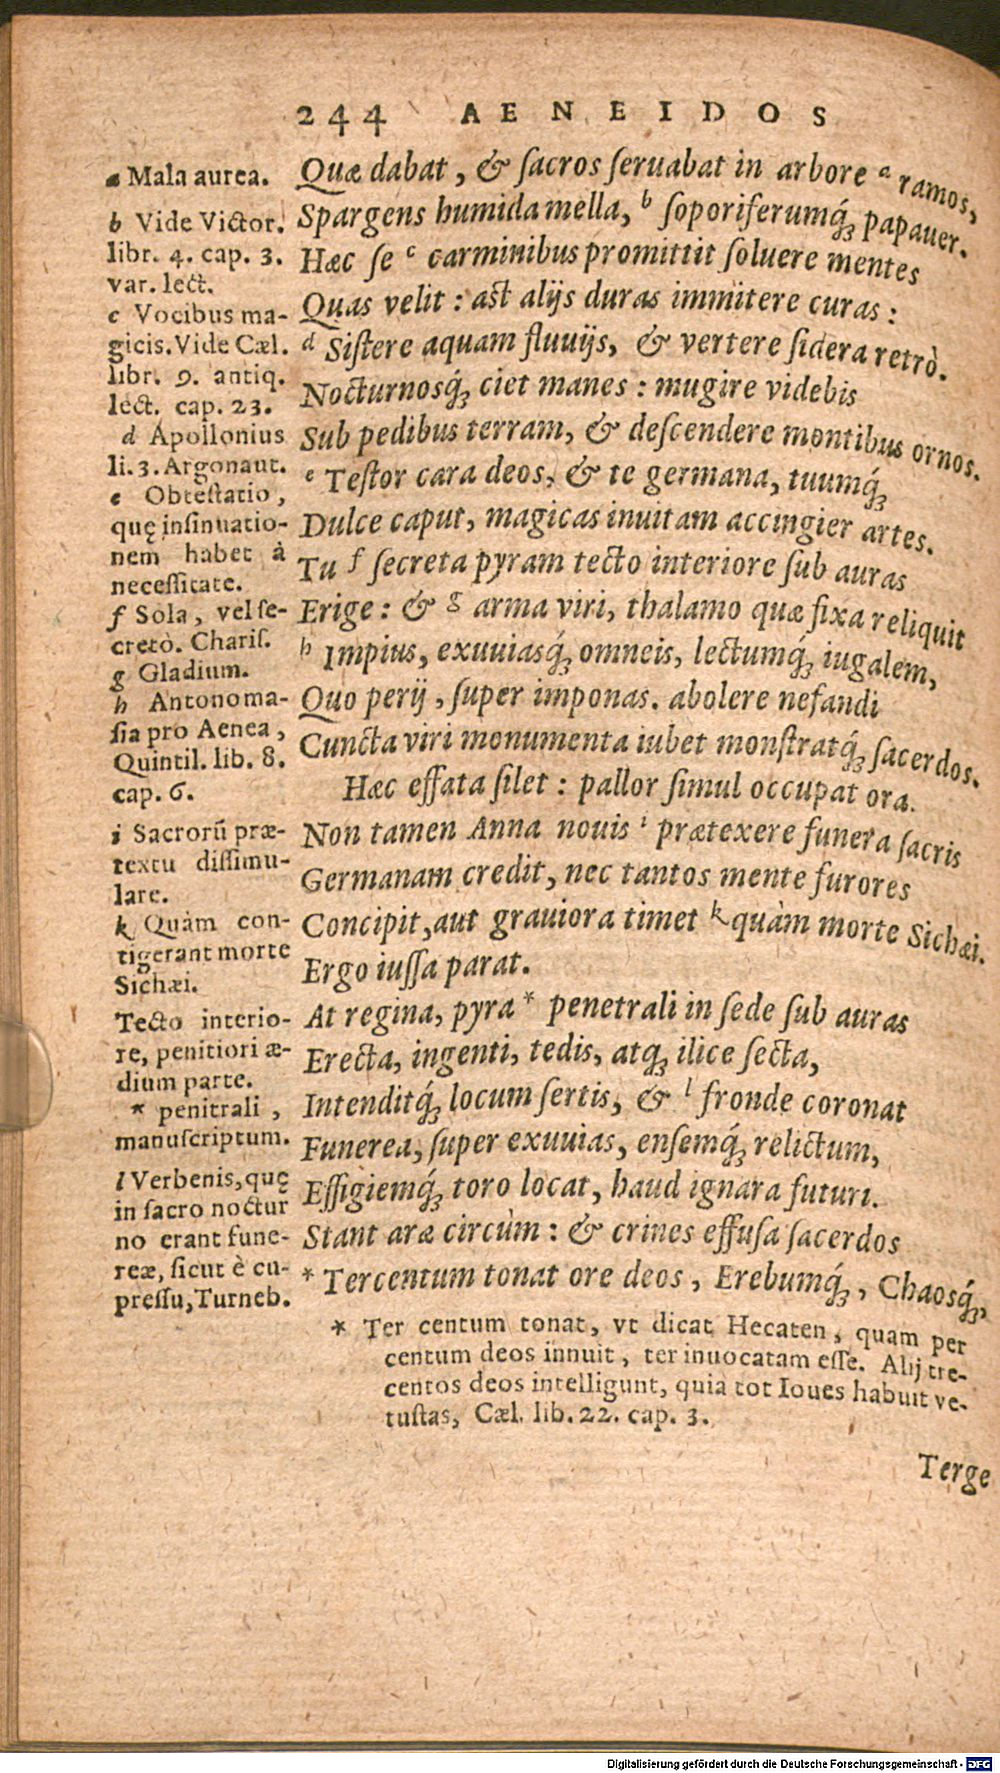 244 AENEIDOS
a Mala aurea.
b Vide Victor.
libr. 4. cap. 3.
var. lect.
c Vocibus ma-
gicis. Vide Cæl.
libr. 9. antiq.
lect. cap. 23.
d Apollonius
li. 3. Argonaut.
e Obtestatio,
quę insinuatio-
nem habet à
necessitate.
f Sola, vel se-
cretò. Charis.
g Gladium.
h Antonoma-
sia pro Aenea,
Quintil. lib. 8.
cap. 6.
i Sacrorũ præ-
textu dissimu-
lare.
k Quàm con-
tigerant morte
Sichæi.
Tecto interio-
re, penitiori æ-
dium parte.
* penitrali,
manuscriptum.
l Verbenis, quę
in sacro noctur
no erant fune-
reæ, sicut è cu-
pressu, Turneb.
Quæ dabat, & sacros seruabat in arbore a ramos,
Spargens humida mella, b soporiferumq́ꝫ papauer.
Hæc se c carminibus promittit soluere mentes
Quas velit: ast alijs duras immitere curas:
d Sistere aquam fluuijs, & vertere sidera retrò.
Nocturnosq́ꝫ ciet manes: mugire videbis
Sub pedibus terram, & descendere montibus ornos.
e Testor cara deos, & te germana, tuumq́ꝫ
Dulce caput, magicas inuitam accingier artes.
Tu f secreta pyram tecto interiore sub auras
Erige: & g arma viri, thalamo quæ fixa reliquit
h Impius, exuuiasq́ꝫ omneis, lectumq́ꝫ iugalem,
Quo perij, super imponas. abolere nefandi
Cuncta viri monumenta iubet monstratq́ꝫ sacerdos.
Hæc effata silet: pallor simul occupat ora.
Non tamen Anna nouis i prætexere funera sacris
Germanam credit, nec tantos mente furores
Concipit, aut grauiora timet k quàm morte Sichæi.
Ergo iussa parat.
At regina, pyra * penetrali in sede sub auras
Erecta, ingenti, tedis, atqꝫ ilice secta,
Intenditq́ꝫ locum sertis, & l fronde coronat
Funerea, super exuuias, ensemq́ꝫ relictum,
Effigiemq́ꝫ toro locat, haud ignara futuri.
Stant aræ circùm: & crines effusa sacerdos
* Tercentum tonat ore deos, Erebumq́ꝫ, Chaosq́ꝫ,
* Ter centum tonat, vt dicat Hecaten, quam per
centum deos innuit, ter inuocatam esse. Alij tre-
centos deos intelligunt, quia tot Ioues habuit ve-
tustas, Cæl. lib. 22. cap. 3.
Terge
Digitalisierung gefördert durch die Deutsche Forschungsgemeinschaft - DFG